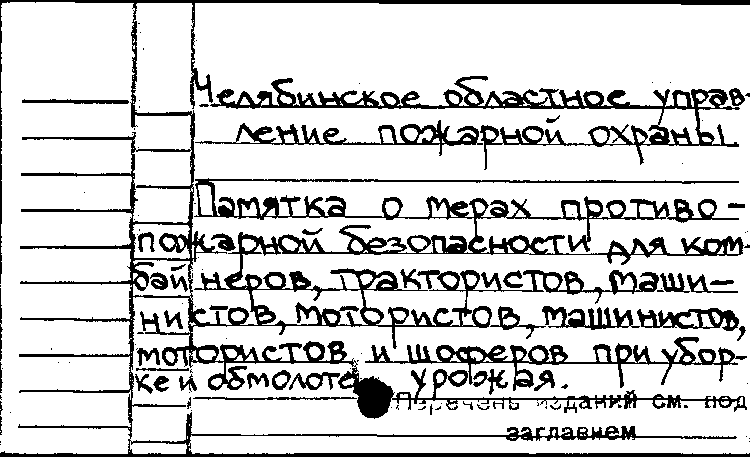 Челябинское областное управ-
ление пожарной охраны.
Памятка о мерах противо-
пожарной безопасности для ком-
байнеров, трактористов, маши-
нистов, мотористов, машинистов,
мотористов и шоферов при убор-
ке и обмолоте урожая.
Перечень изданий см. под
заглавием